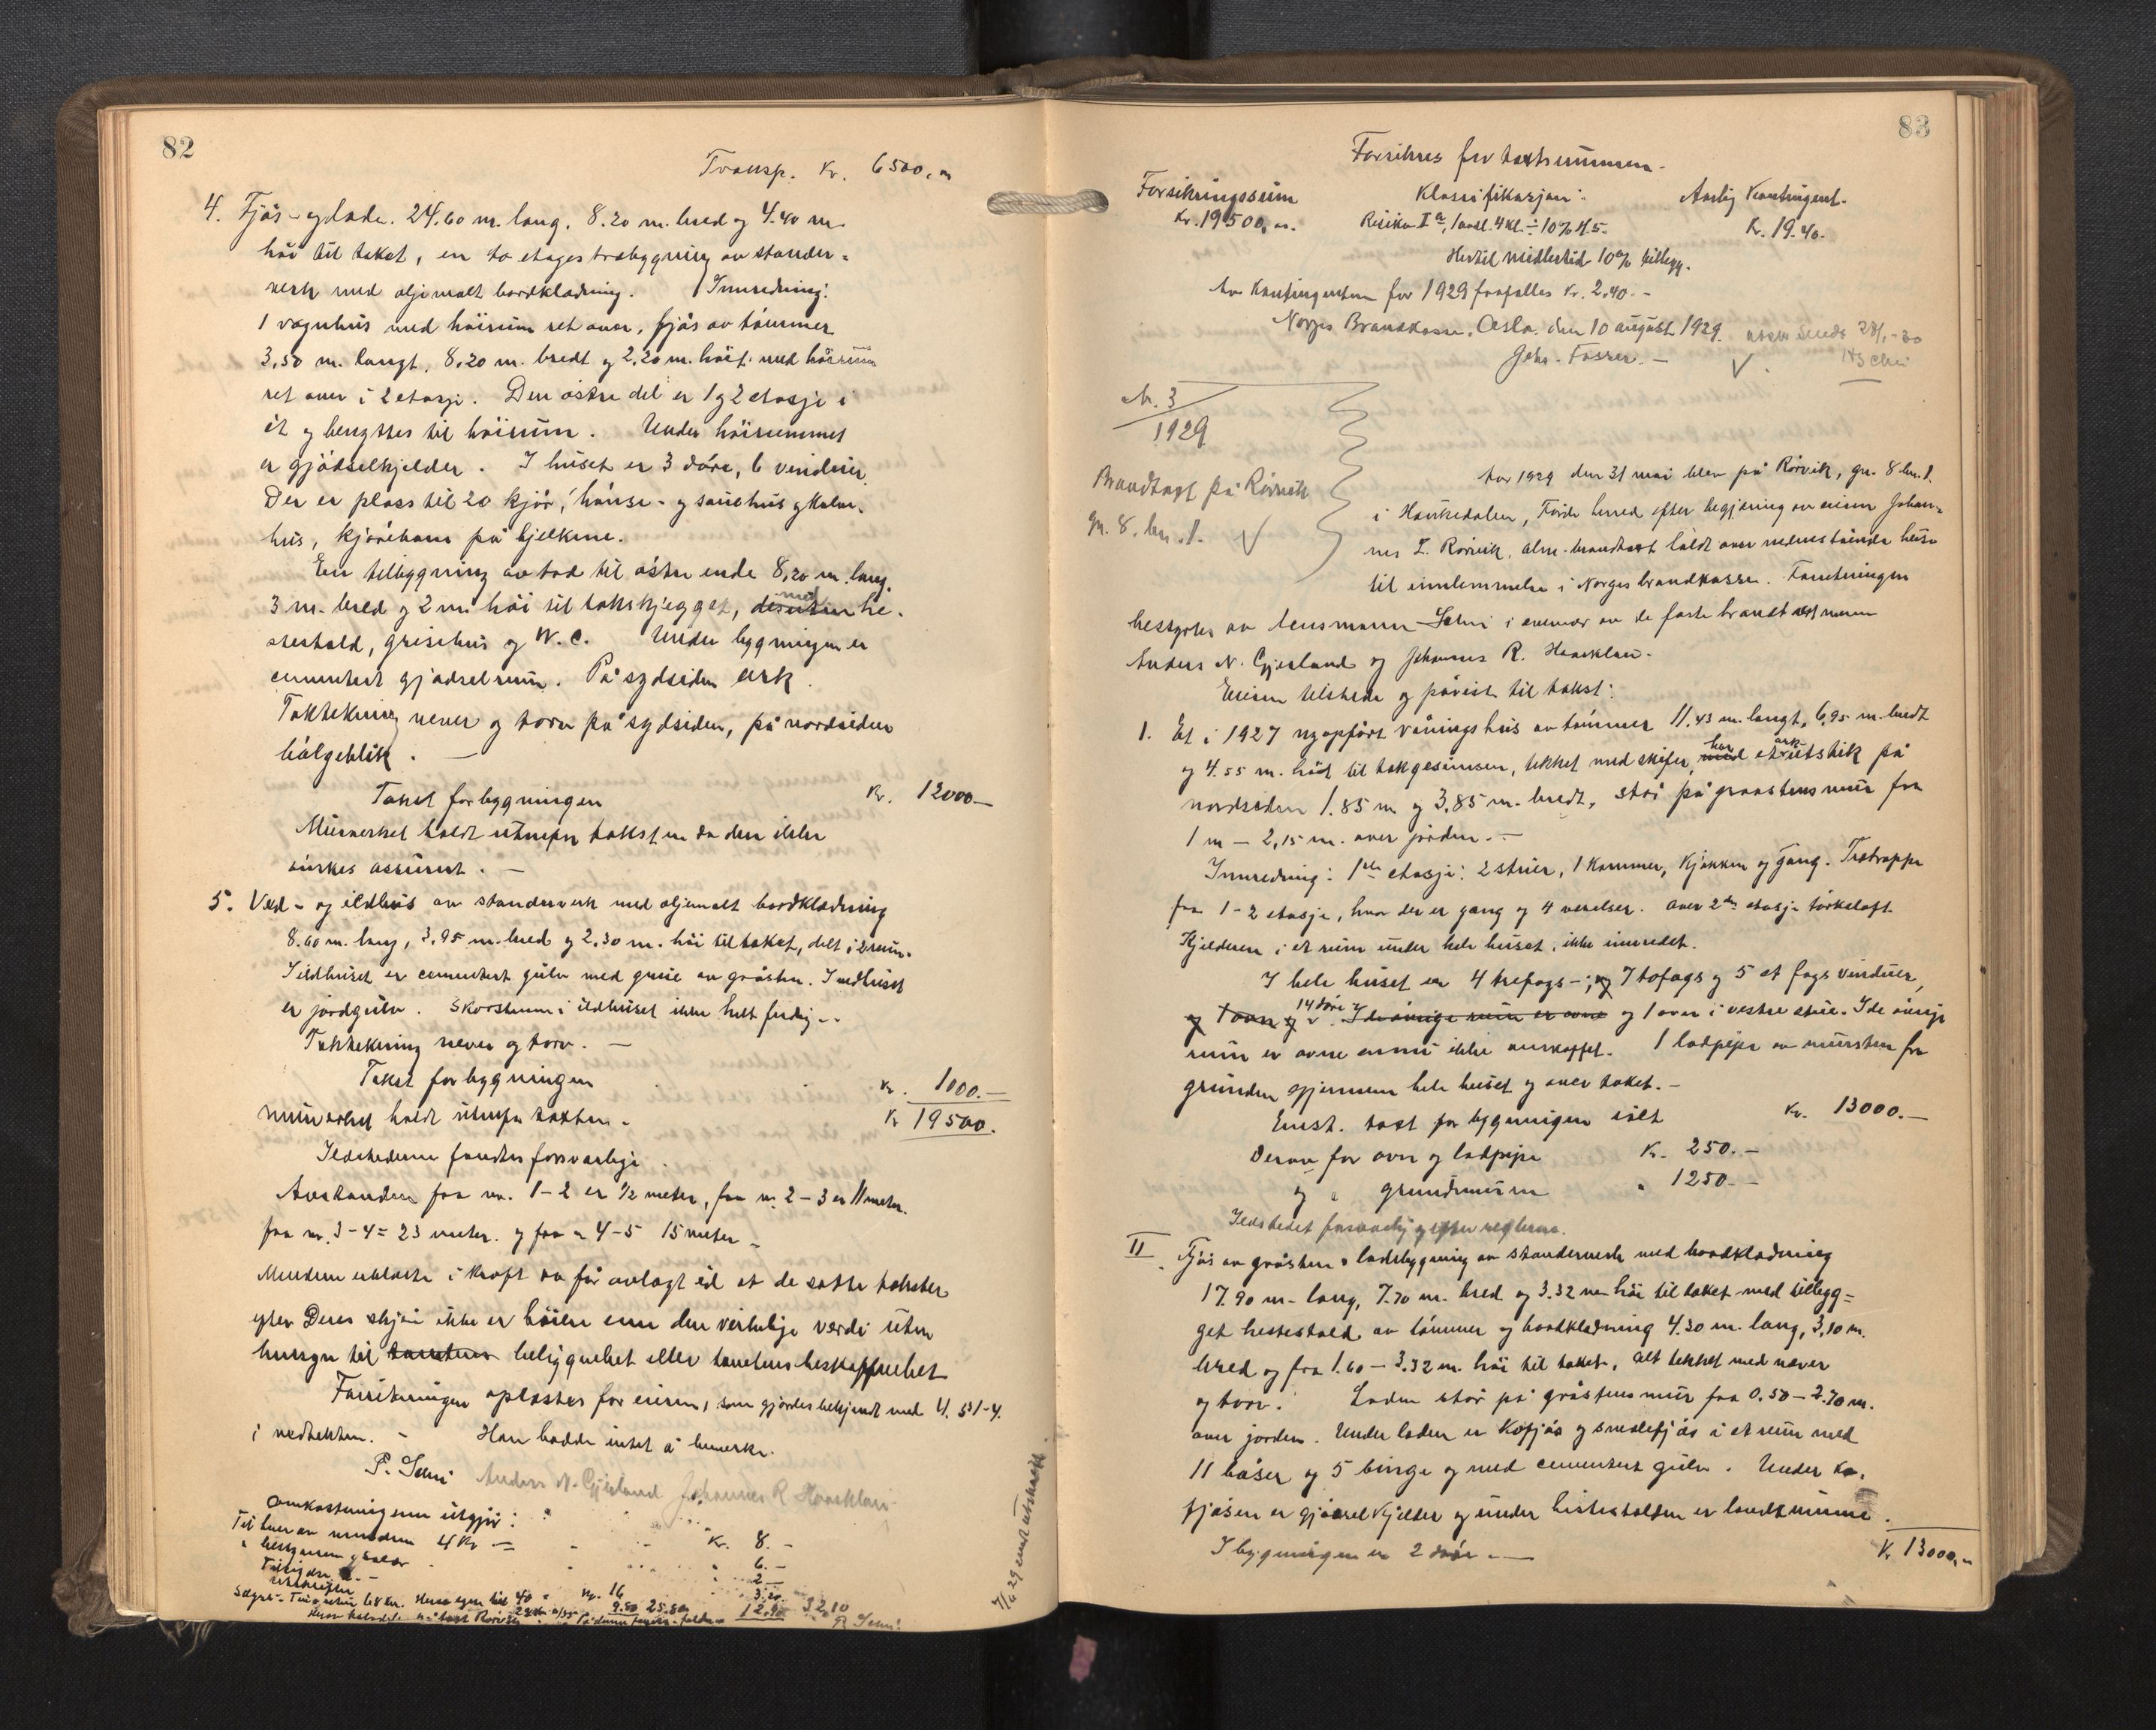 82
Transp. Kr. 6500,00
4. Fjøs- og lade. 24.60 m. lang, 8.20 m. bred og 4.40 m.
høi til taket, en to etages træbygning av stender-
verk med oljemalt bordklædning. Innredning:
1 vognhus med høirum ret over, fjøs av tømmer
3,50 m. langt, 8,20 m. bredt og 2,20 m. høit med høirum
ret over i 2 etasje. Den østre del er 1 og 2 etasje i
ét og benyttes til høirum. Under høirummet
er gjødselkjelder. I huset er 3 døre, 6 vinduer.
Der er plass til 20 kjør, hønse- og sauehus og kalve-
hus, kjørebane på bjelkene.
En tilbygning av tod til østre ende 8,20 m. lang,
3 m. bred og 2 m. høi til takskjegget, desuten med he-
stestald, grisehus og W.C. Under bygningen er
cementert gjødselrum. På sydsiden ark.
Taktekning never og torv på sydsiden, på nordsiden
bølgeblik. —
Takst for bygningen Kr. 12000 —
Murverket holdt utenfor taksten da den ikke
ønskes assurert. —
5. Ved- og ildhus av stenderverk med oljemalt bordklædning
8.60 m. lang, 3.95 m. bred og 2.30 m. høi til taket, delt i 2 rum.
I ildhuset er cementert gulv med grue av gråsten. I vedhuset
er jordgulv. Skorstenen i ildhuset ikke helt ferdig. -
Taktekning never og torv. —
Takst for bygningen Kr. 1000. —
Murverket holdt utenfor taxten. Kr 19500.
Ildstederne fandtes forsvarlige.
Avstanden fra nr. 1-2 er 1/2 meter, fra nr. 2-3 er 11 meter.
fra nr. 3-4 = 23 meter. og fra " 4-5 15 meter —
Mendene erklærte i kraft av før avlagt ed at de satte takster
efter Deres skjøn ikke er høiere enn den virkelige værdi uten
hensyn til tomtens beliggenhet eller tomtens beskaffenhet
Forretningen oplæstes for eieren, som gjordes bekjendt med 4. §§ 1-4.
i vedtekten. - Han hadde intet å bemerke.
P. Selmi Anders N. Gjesland Johannes R. Haaeklau
Omkostningene utgjør:
Til hver av mendene 4 Kr — Kr. 8. -
" bestyreren 6. -
2 —
3.20.
Kr. 16
9.80 25.80
12.90 32,10
7/6 29 sendt utskrift
83
Forsikres for taxtsummen.
Forsikringssum Klassifikasjon: Aarlig Kontingent.
Kr. 19500,00. Risiko I a, 4 kl. ÷ 10% Kr. 19.40.
Hertil midlertid 10% tillegg.
Av Kontingenten for 1929 frafalles Kr. 2,40. —
Norges Brandkasse, Oslo. den 10 august 1929.
Johs. Fosser. —
Nr. 3
1929
Brandtaxt på Rørvik
gr. 8. br. 1.
Aar 1929 den 31 mai blev på Rørvik, gr. 8 br. 1.
i Haukedalen, Førde herred efter begjæring av eieren Johan-
nes L. Rørvik, alm. brandtaxt holdt over nedenstående huse
til innlemmelse i Norges brandkasse. Forretningen
bestyrtes av lensmann Selmi i nærvær av de faste brandtaxtmenn
Anders N. Gjesland og Johannes R. Haaeklau.
Eieren tilstede og påviste til takst:
1. Et i 1927 nyopført våningshus av tømmer 11.43 m. langt, 6,95 m. bredt
og 4.55 m. høit til takgesimsen, tekket med skifer, med har et ark utstik på
nordsiden 1.85 m og 3,85 m. bredt, står på graastensmur fra
1 m — 2,15 m. over jorden. —
Innredning: 1ste etasje: 2 stuer, 1 kammer, kjøkken og gang. Tretrappe
fra 1-2 etasje, hvor der er gang og 4 værelser. over 2den etasje tørkeloft.
Kjelderen i et rum under hele huset, ikke innredet.
I hele huset er 4 trefags-; og 7 tofags og 5 et fags vinduer,
og 1 ovn og 14 døre og I de øvrige rum er ovne og 1 ovn i vestre stue. I de øvrige
rum er ovne ennu ikke anskaffet. 1 ladpipe av mursten fra
grunden gjennem hele huset og over taket. —
Enst. taxt for bygningen ialt Kr. 13000. —
Derav for ovn og ladpipe Kr. 250. —
og " grundmuren " 1250. —
Ildstedet forsvarlig og efter reglerne.
II. Fjøs av gråsten og ladebygning av stenderverk med bordklædning
17.90 m. lang, 7.70 m. bred og 3.32 m. høi til taket med tillegg-
get hestestald av tømmer og bordklædning 4.30 m. lang, 3,10 m.
bred og fra 1.60 — 3.32 m. høi til taket, alt tekket med never
og torv. Laden står på gråstens mur fra 0.50 — 2.70 m.
over jorden. Under laden er kofjøs og smalefjøs i et rum med
11 båser og 5 binge og med cementert gulv. Under ko-
fjøsen er gjødselkjelder og under hestestalden er landkumme.
I bygningen er 2 døre. — Kr. 13000,00